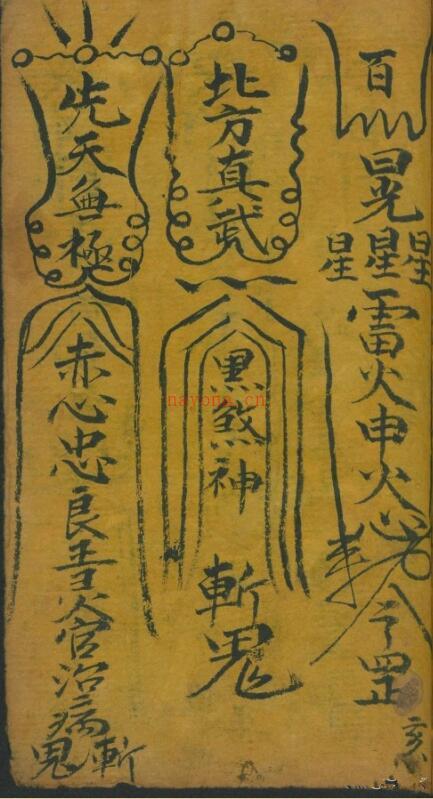 百
日光
星星星
雷火申火
令罡
北方真武
黑煞神
斬鬼
先天無極
赤心忠良
火官治病
斬鬼
nayona.cn